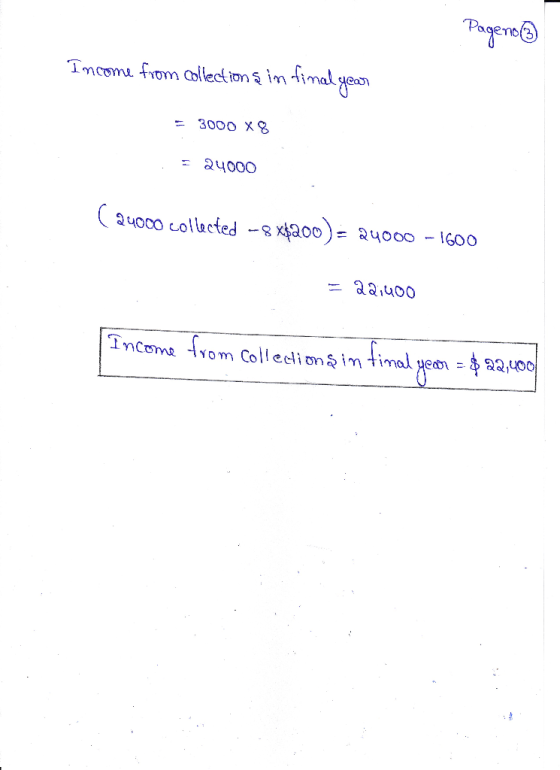 Pageno 3
Income from collections in final year
= 3000 x 8
= 24000
( 24000 collected - 8 x $200 ) = 24000 - 1600
= 22,400
Income from collections in final year = $ 22,400